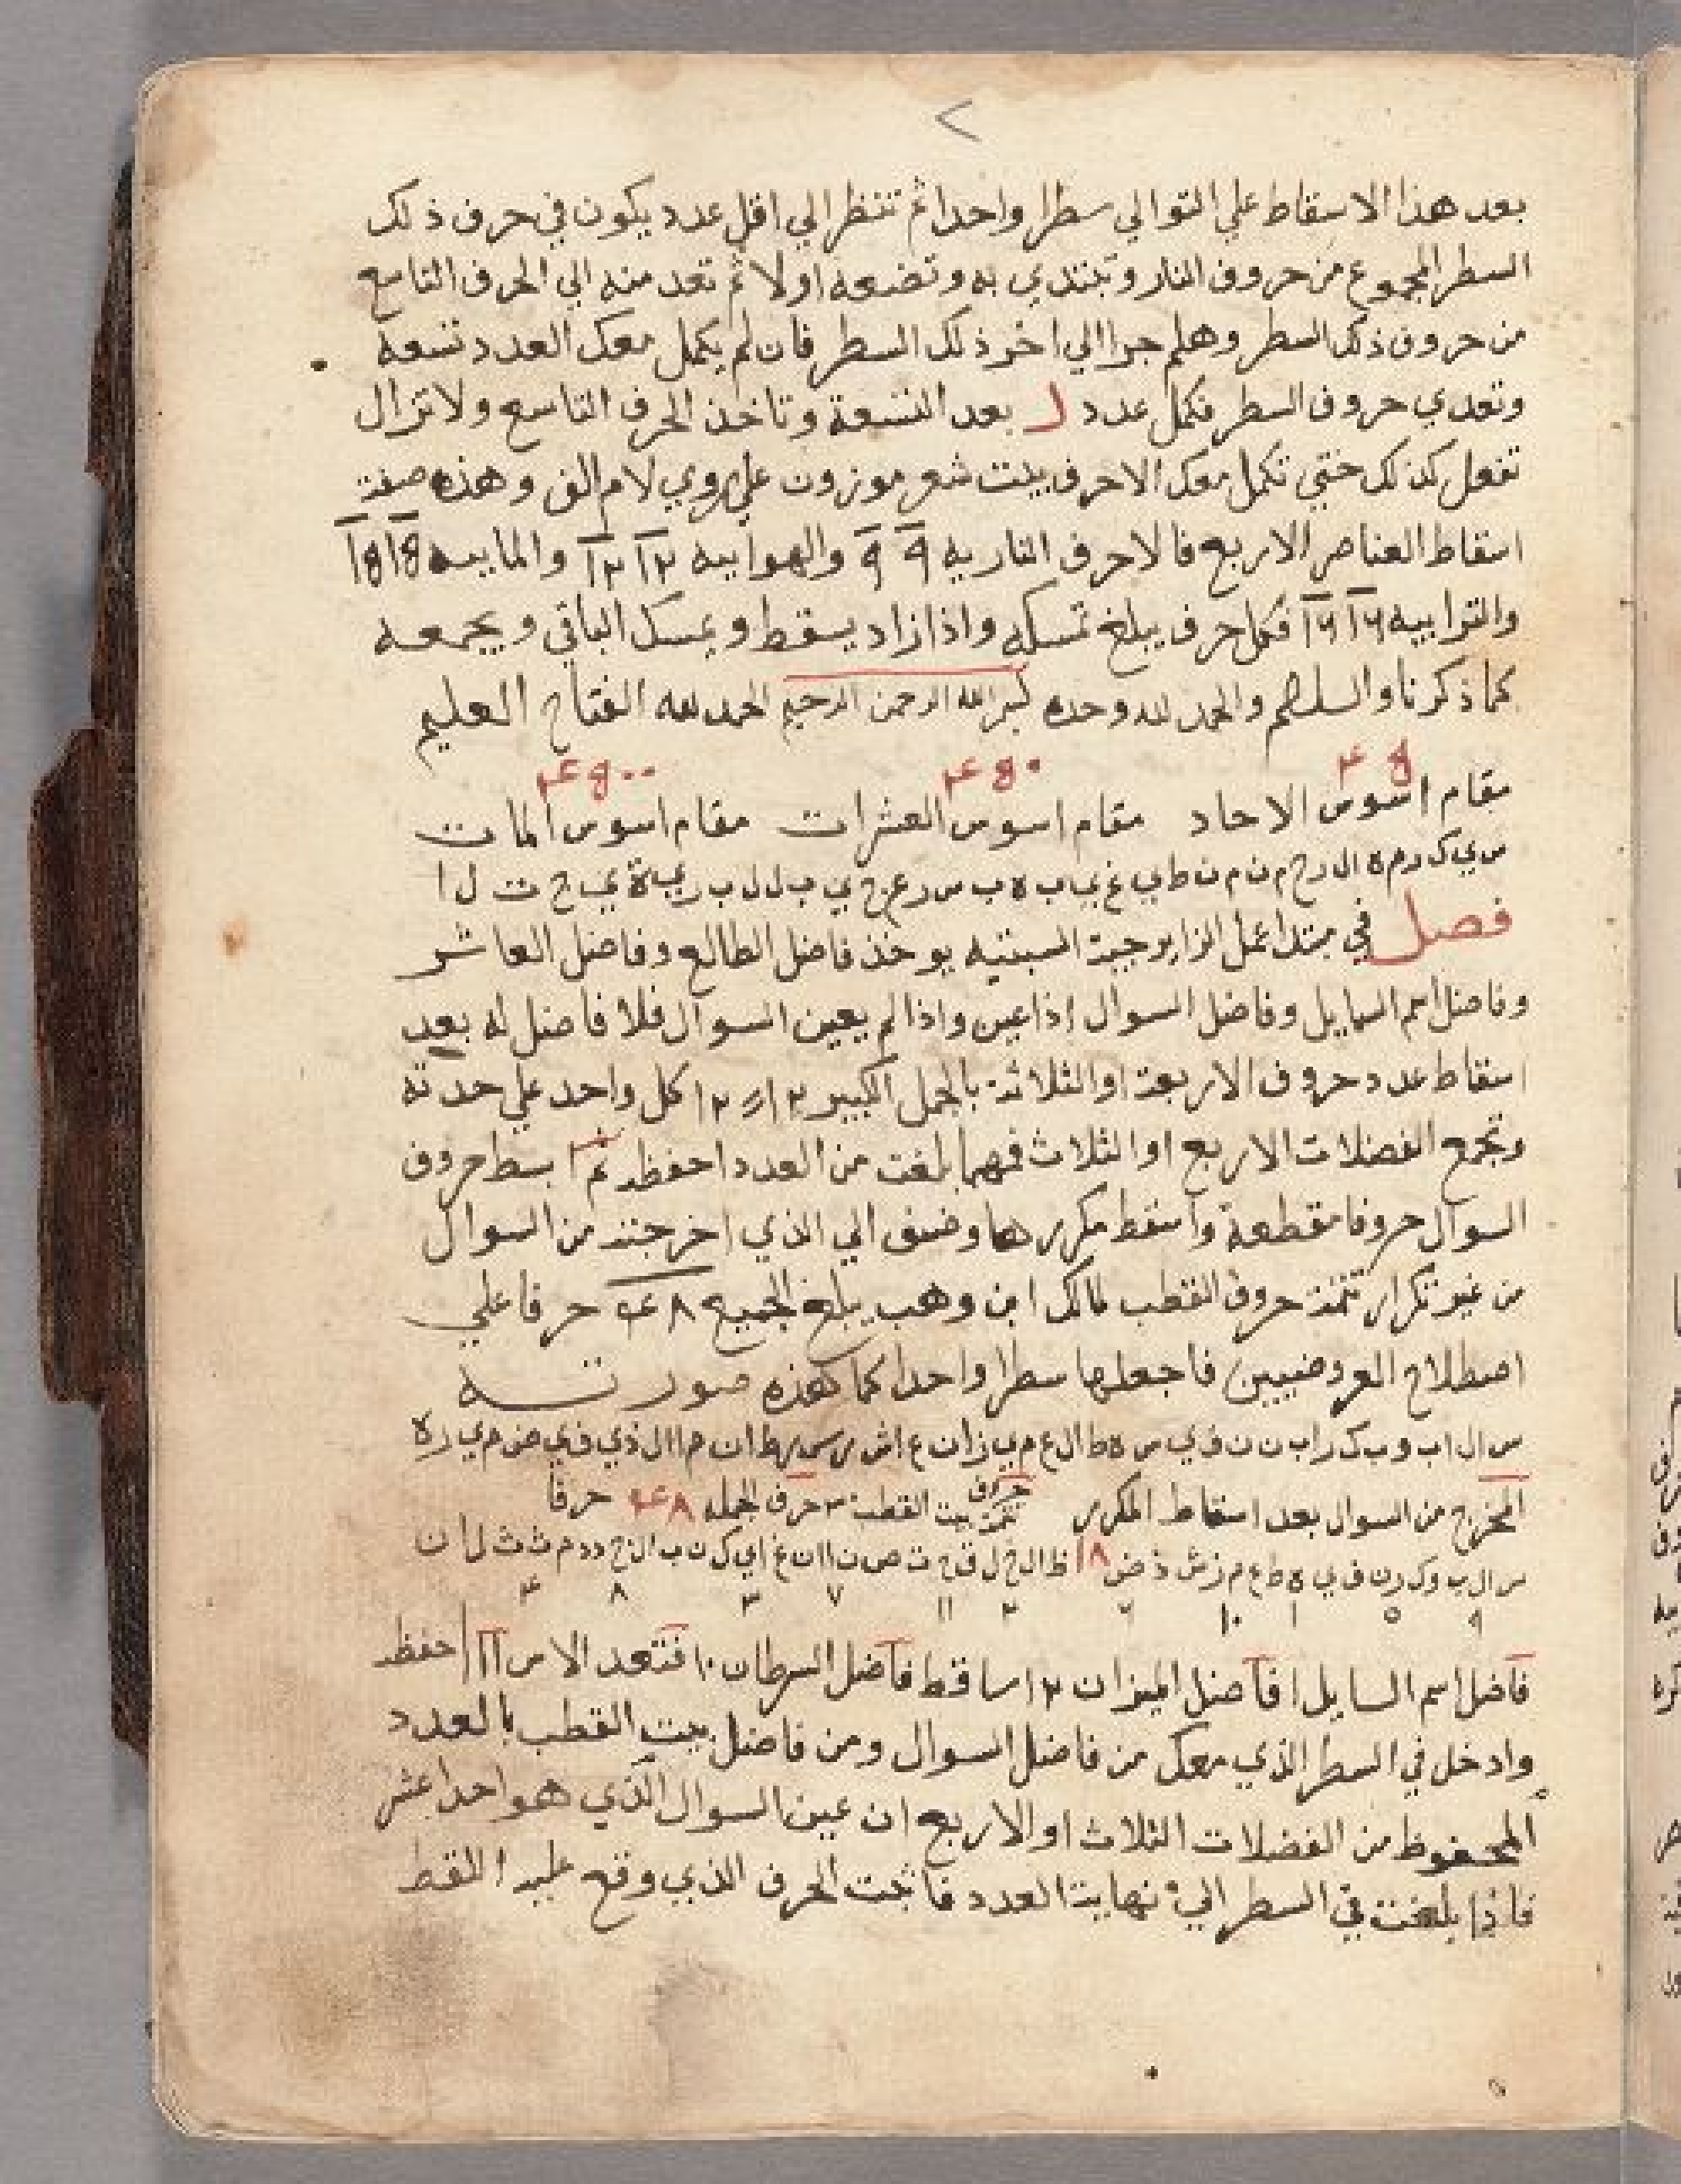 بعد هذا الاسقاط علي التوالي سطرا واحدا ثم تنظر الي اقل عدد يكون في حرف ذلك
السطر المجموع من حروف النار وتبتدي به وتضعه اولا ثم تعد منه الي الحرف التاسع
من حروف ذلك السطر وهلم جرا الي اخر ذلك السطر فان لم يكمل معك العدد تسعة
وتعدي حروف السطر فكمل عدد بعد التسعة وتاخذ الحرف التاسع ولا تزال
تفعل كذلك حتي تكمل معك الاحرف بيت شعر موزون علي روي لام الف وهذه صفة
اسقاط العناصر الاربع فالاحرف الناريه ٩ ٩ والهوابيه ١٢ ١٢ والماييه
والترابيه فكل حرف يبلغ تمسكه واذا زاد يسقط ويمسك الباقي ويجمعه
كما ذكرنا والسلام والحمد لله وحده بسم الله الرحمن الرحيم الحمد لله الفتاح العليم
مقام اسوس الاحاد مقام اسوس العشرات مقام اسوس المات
فصل في مبتدا عمل الزايرجية السبتيه يوخذ فاضل الطالع وفاضل العاشر
وفاضل اسم السايل وفاضل السوال إذا عين واذا لم يعين السوال فلا فاضل له بعد
اسقاط عدد حروف الاربعة او الثلاثة بالجمل الكبير ١٢ ١٢ كل واحد علي حدته
وتجمع الفضلات الاربع او الثلاث فمهما بلغت من العدد احفظه ثم ابسط حروف
السوال حروفا مقطعة واسقط مكررها وضف الي الذي اخرجته من السوال
من غير تكرار تتمة حروف القطب لمالك ابن وهب يبلغ الجميع ٤٨ حرفا علي
اصطلاح العروضيين فاجعلها سطرا واحدا كما هذه صورته
س ال اب و ب ك ر اب ن ن ف ي س ة ط ال ع م ي ز ان ع اش ر س ر ط ان م ا ال ذ ي ف ي ض م ي ر ه
المخرج من السوال بعد اسقاط المكرر تتمة حروف بيت القطب ٣٠ حرف الجمله ٤٨ حرفا
س ال ب و ك ر ن ف ي ة ط ع م ز ش ذ ض ١٨
فاضل اسم السايل ١ فاضل الميزان ١٢ ساقط فاضل السرطان ١٠ فتعد الاس ١١ احفظه
وادخل في السطر الذي معك من فاضل السوال ومن فاضل بيت القطب بالعدد
المحفوظ من الفضلات الثلاث او الاربع ان عين السوال الذي هو احدا عشر
فاذا بلغت في السطر الي نهاية العدد فاثبت الحرف الذي وقع عليه اللقط